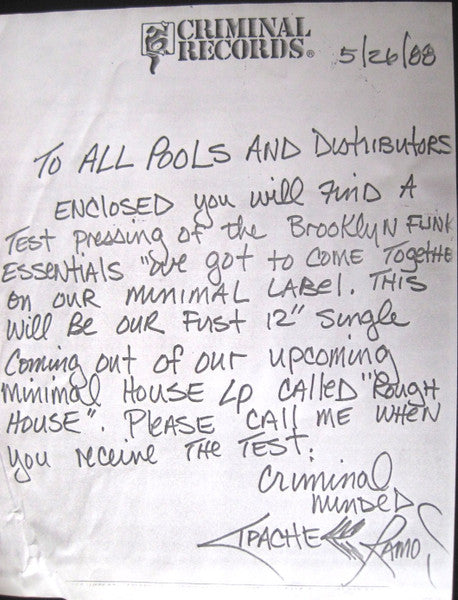 CRIMINAL
RECORDS®
5/26/88
TO ALL POOLS AND DISTRIBUTORS
ENCLOSED you will FIND A
TEST PRESSING of the BROOKLYN FUNK
ESSENTIALS "We got to COME Togethe
ON OUR MINIMAL LABEL. THIS
will BE OUR FIRST 12" Single
Coming out of our upcoming
Minimal HOUSE Lp CALLED "Rough
HOUSE". PLEASE CALL ME WHEN
you receive THE TEST;
Criminal
MINDED
APACHE RAMOS